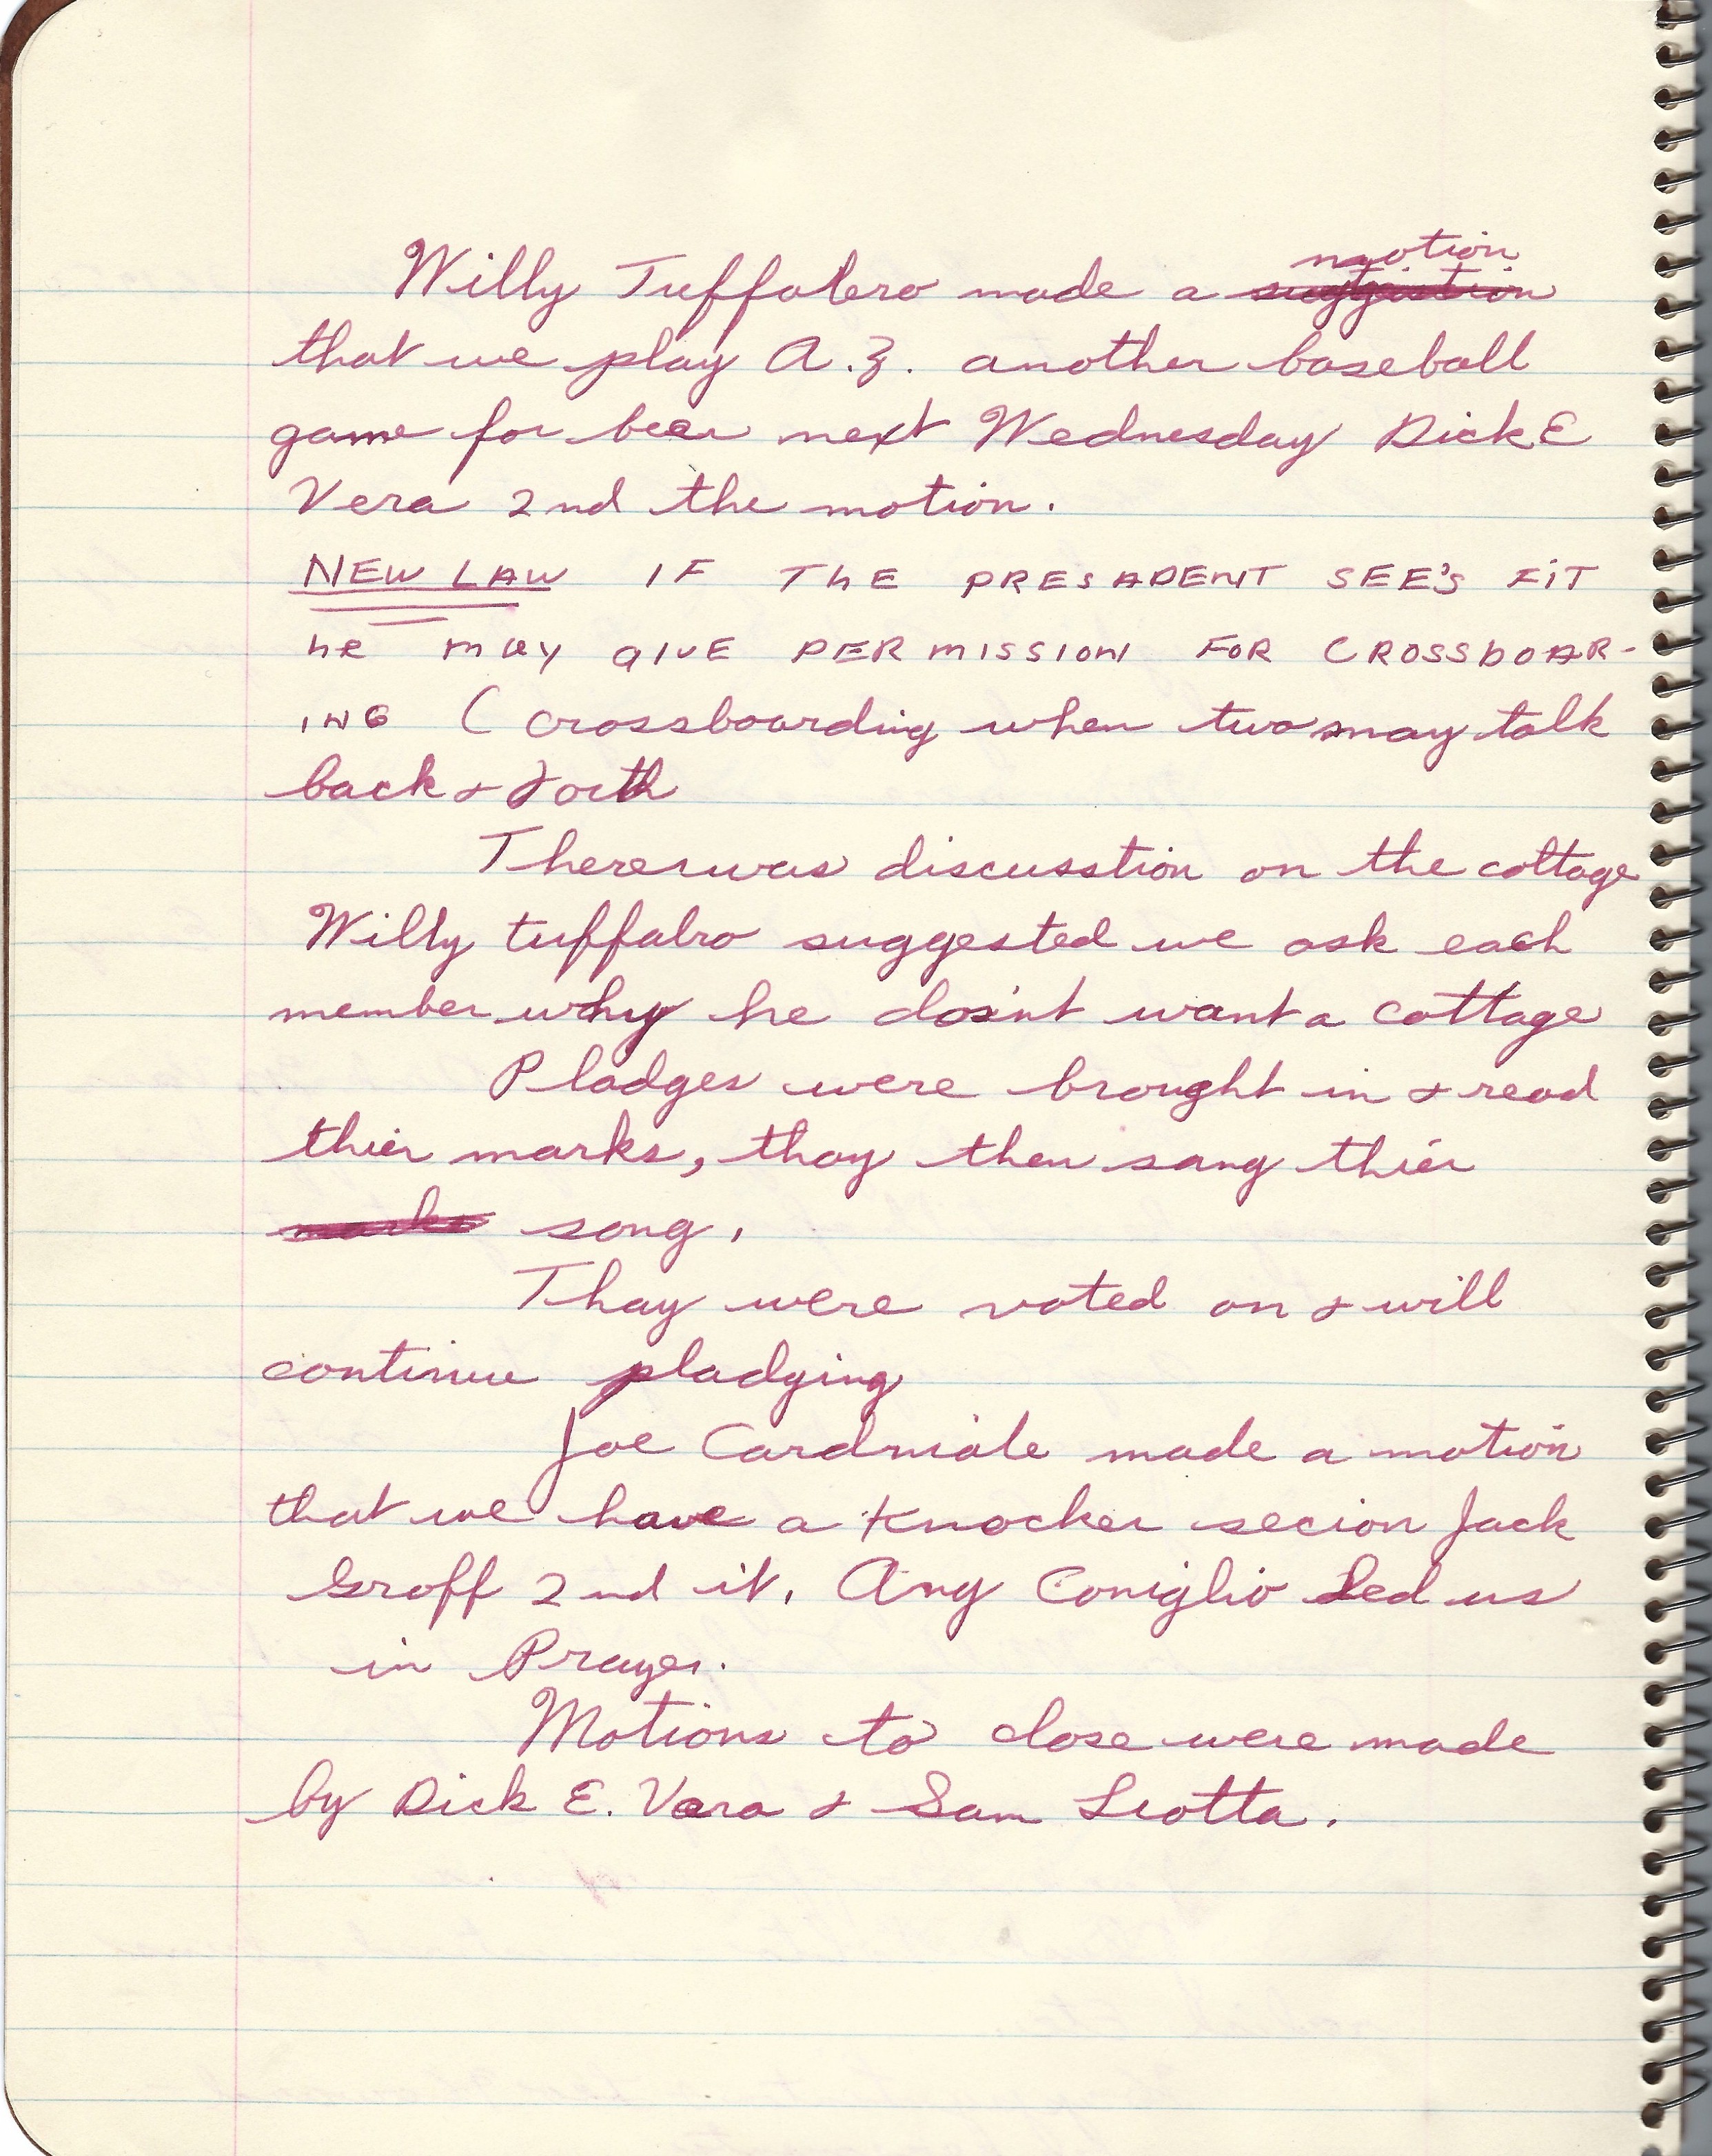 motion
Willy Tuffalero made a suggestion
that we play A.Z. another baseball
game for beer next Wednesday Dick E
Vera 2nd the motion.
NEW LAW IF THE PRESADENT SEE'S FIT
he may GIVE PERMISSION FOR CROSSBOAR-
ING ( crossboarding when two may talk
back & forth
There was discusstion on the cottage
Willy tuffalro suggested we ask each
member why he dos'nt want a cottage
Pladges were brought in & read
thier marks, thay then sang thier
marks song.
Thay were voted on & will
continue pladging
Joe Cardniale made a motion
that we have a Knocker secion Jack
Groff 2nd it. Ang Coniglio Led us
in Prayer.
Motions to close were made
by Dick E. Vera & Sam Liotta.